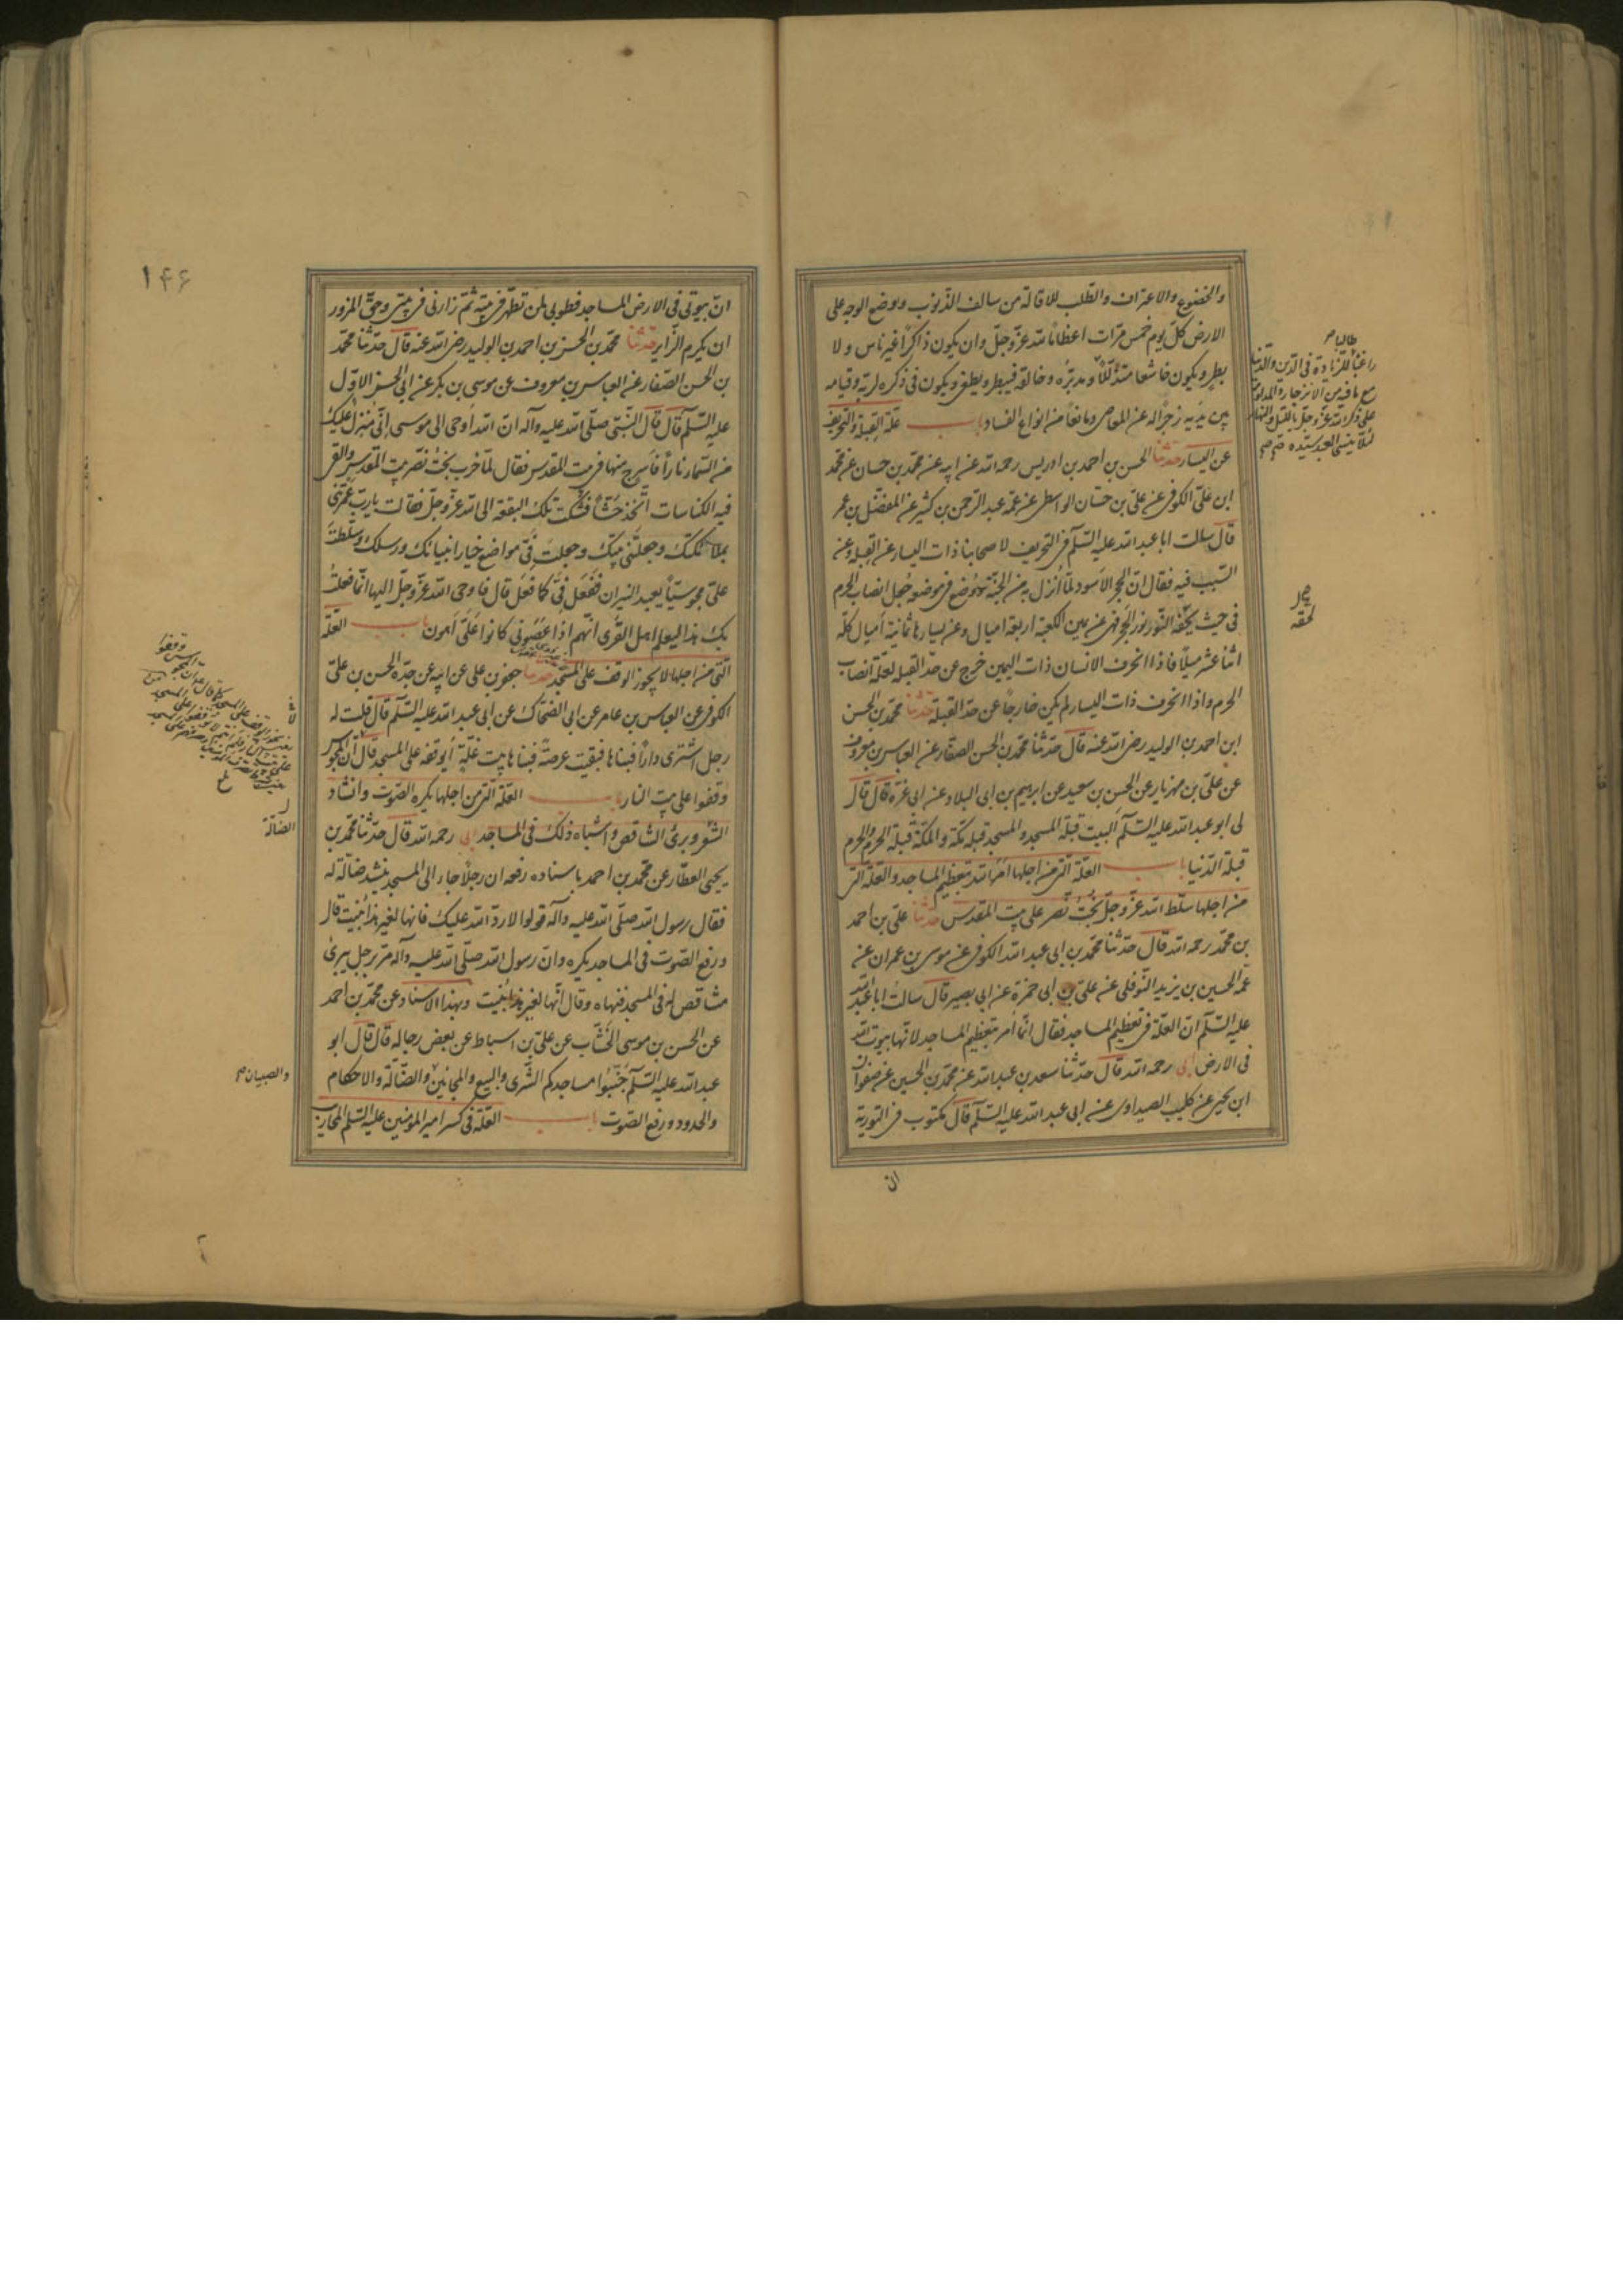 والخضوع والاعتراف والطلب للاقالة من سالف الذنوب ووضع الوجه على
الارض كلّ يوم خمس مرّات اعظاما لله عزّ وجلّ وان يكون ذاكرًا غير ناس ولا
بطر ويكون خاشعا متذلّلًا
ومدبّره وخالقه فيبطر ويطغى ويكون فى ذكره لربّه وقيامه
بين يديه زجرًا له عن المعاصى ومانعًا من انواع الفساد باب علّة القبلة والتحريف
عن اليسار حدثنا الحسن بن احمد بن ادريس رحمه الله عن ابيه عن محمد بن حسان عن محمد
ابن علىّ الكوفى عن علىّ بن حسّان الواسطى عن عمّه عبد الرّحمن بن كثير عن المفضّل بن عمر
قال سالت ابا عبد الله عليه السّلم عن التحريف لاصحابنا ذات اليسار عن القبلة وعن
السّبب فيه فقال انّ الحجر الاسود لمّا اُنزل من الجنّة ووُضع فى موضعه جُعل انصاب الحرم
فى حيث يلحقه النّور نور الحجر فهى عن يمين الكعبة اربعة اميال وعن يسارها ثمانية اميال كلّه
اثنا عشر ميلًا فاذا انحرف الانسان ذات اليمين خرج عن حدّ القبلة لعلّة انصاب
الحرم واذا انحرف ذات اليسار لم يكن خارجًا عن حدّ القبلة حدثنا محمّد بن الحسن
ابن احمد بن الوليد رضى الله عنه قال حدّثنا محمّد بن الحسن الصفّار عن العباس بن معروف
عن علىّ بن مهزيار عن الحسن بن سعيد عن ابرهيم بن ابى البلاد عن ابى غرّة قال قال
لى ابو عبد الله عليه السّلم البيت قبلة المسجد والمسجد قبلة مكّة والمكّة قبلة الحرم والحرم
قبلة الدّنيا باب العلّة الّتى من اجلها امر الله بتعظيم المساجد والعلّة التى
من اجلها سلّط الله عزّ وجلّ بُخت نصر على بيت المقدس حدثنا علىّ بن احمد
بن محمّد رحمه الله قال حدّثنا محمّد بن ابى عبد الله الكوفى عن موسى بن عمران عن
عمّه الحسين بن يزيد النّوفلى عن علىّ بن ابى حمزة عن ابى بصير قال سالتُ ابا عبد الله
عليه السّلم انّ العلّة فى تعظيم المساجد فقال انّما اُمر بتعظيم المساجد لانّها بيوت الله
فى الارض ابى رحمه الله قال حدّثنا سعد بن عبد الله عن محمّد بن الحسين عن صفوان
ابن يحيى عن كليب الصيداوى عن ابى عبد الله عليه السّلم قال مكتوب فى التورية
ان
طالبا
راغبًا للزيادة فى الدّين والدنيا
مع ما فيه من الانزجار والمداومة
على ذكر الله عزّ وجلّ بالليل والنهار
لئلّا ينسى العبد سيّده
يلحقه
۱۴۶
انّ بيوتى فى الارض المساجد فطوبى لمن تطهّر فى بيته ثمّ زارنى فى بيتى وحقّ المزور
ان يكرم الزّاير حدثنا محمّد بن الحسن بن احمد بن الوليد رضى الله عنه قال حدّثنا محمّد
بن الحسن الصّفار عن العباس بن معروف عن موسى بن بكر عن ابى الحسن الاوّل
عليه السّلم قال قال النّبىّ صلّى الله عليه وآله انّ الله اوحى الى موسى انّى مُنزل عليك
من السّماء نارًا فاسرج منها فى بيت المقدس فقال لمّا خرب بخت نصر بيت المقدس والقى
فيه الكناسات اتّخذ حُشًّا فشكت تلك البقعة الى الله عزّ وجلّ فقالت يا ربّ عمّرتنى
بملائكتك وجعلتنى بيتك وجعلتَ فىّ مواضع خيار انبيائك ورسلك وسلّطتَ
علىّ مجوسيّا يعبد النيران ففَعَل فىّ كما فعَل قال فاوحى الله عزّ وجلّ اليها انّما فعلتُ
بك هذا ليعلم اهل القرى انّهم اذا عَصَونى كانوا علىّ اَهون باب العلّة
الّتى من اجلها لا يجوز الوقف على المسجد حدثنا جعفر بن على عن ابيه عن جدّه الحسن بن علىّ
الكوفى عن العباس بن عامر عن ابى الضحّاك عن ابى عبد الله عليه السّلم قال قلت له
رجل اشترى دارًا فبناها فبقيت عرصةً فبناها بيت غلّة أيوقفه على المسجد قال انّ المجوس
وقفوا على بيت النار باب العلّة الّتى من اجلها يكره الصّوت وانشاد
الشّعر وبرى المشاقص واشباه ذلك فى المساجد ابى رحمه الله قال حدّثنا محمّد بن
يحيى العطّار عن محمّد بن احمد باسناده رفعه ان رجلًا جاء الى المسجد ينشد ضالّة له
فقال رسول الله صلّى الله عليه وآله قولوا لا ردّ الله عليك فانها لغير هذا بُنيت قال
ورفع الصّوت فى المساجد يكره وانّ رسول الله صلّى الله عليه وآله مرّ برجل يبرى
مشاقص له فى المسجد فنهاه وقال انّها لغير هذا بُنيت وبهذا الاسناد عن محمّد بن احمد
عن الحسن بن موسى الخشّاب عن علىّ بن اسباط عن بعض رجاله قال قال ابو
عبد الله عليه السّلم جَنّبُوا مساجدكم الشّرى والبيع والمجانين والضّالّة والاحكام
والحدود ورفع الصّوت باب العلّة فى كسر امير المؤمنين عليه السّلم المحاريب
الضالّة
والصبيان